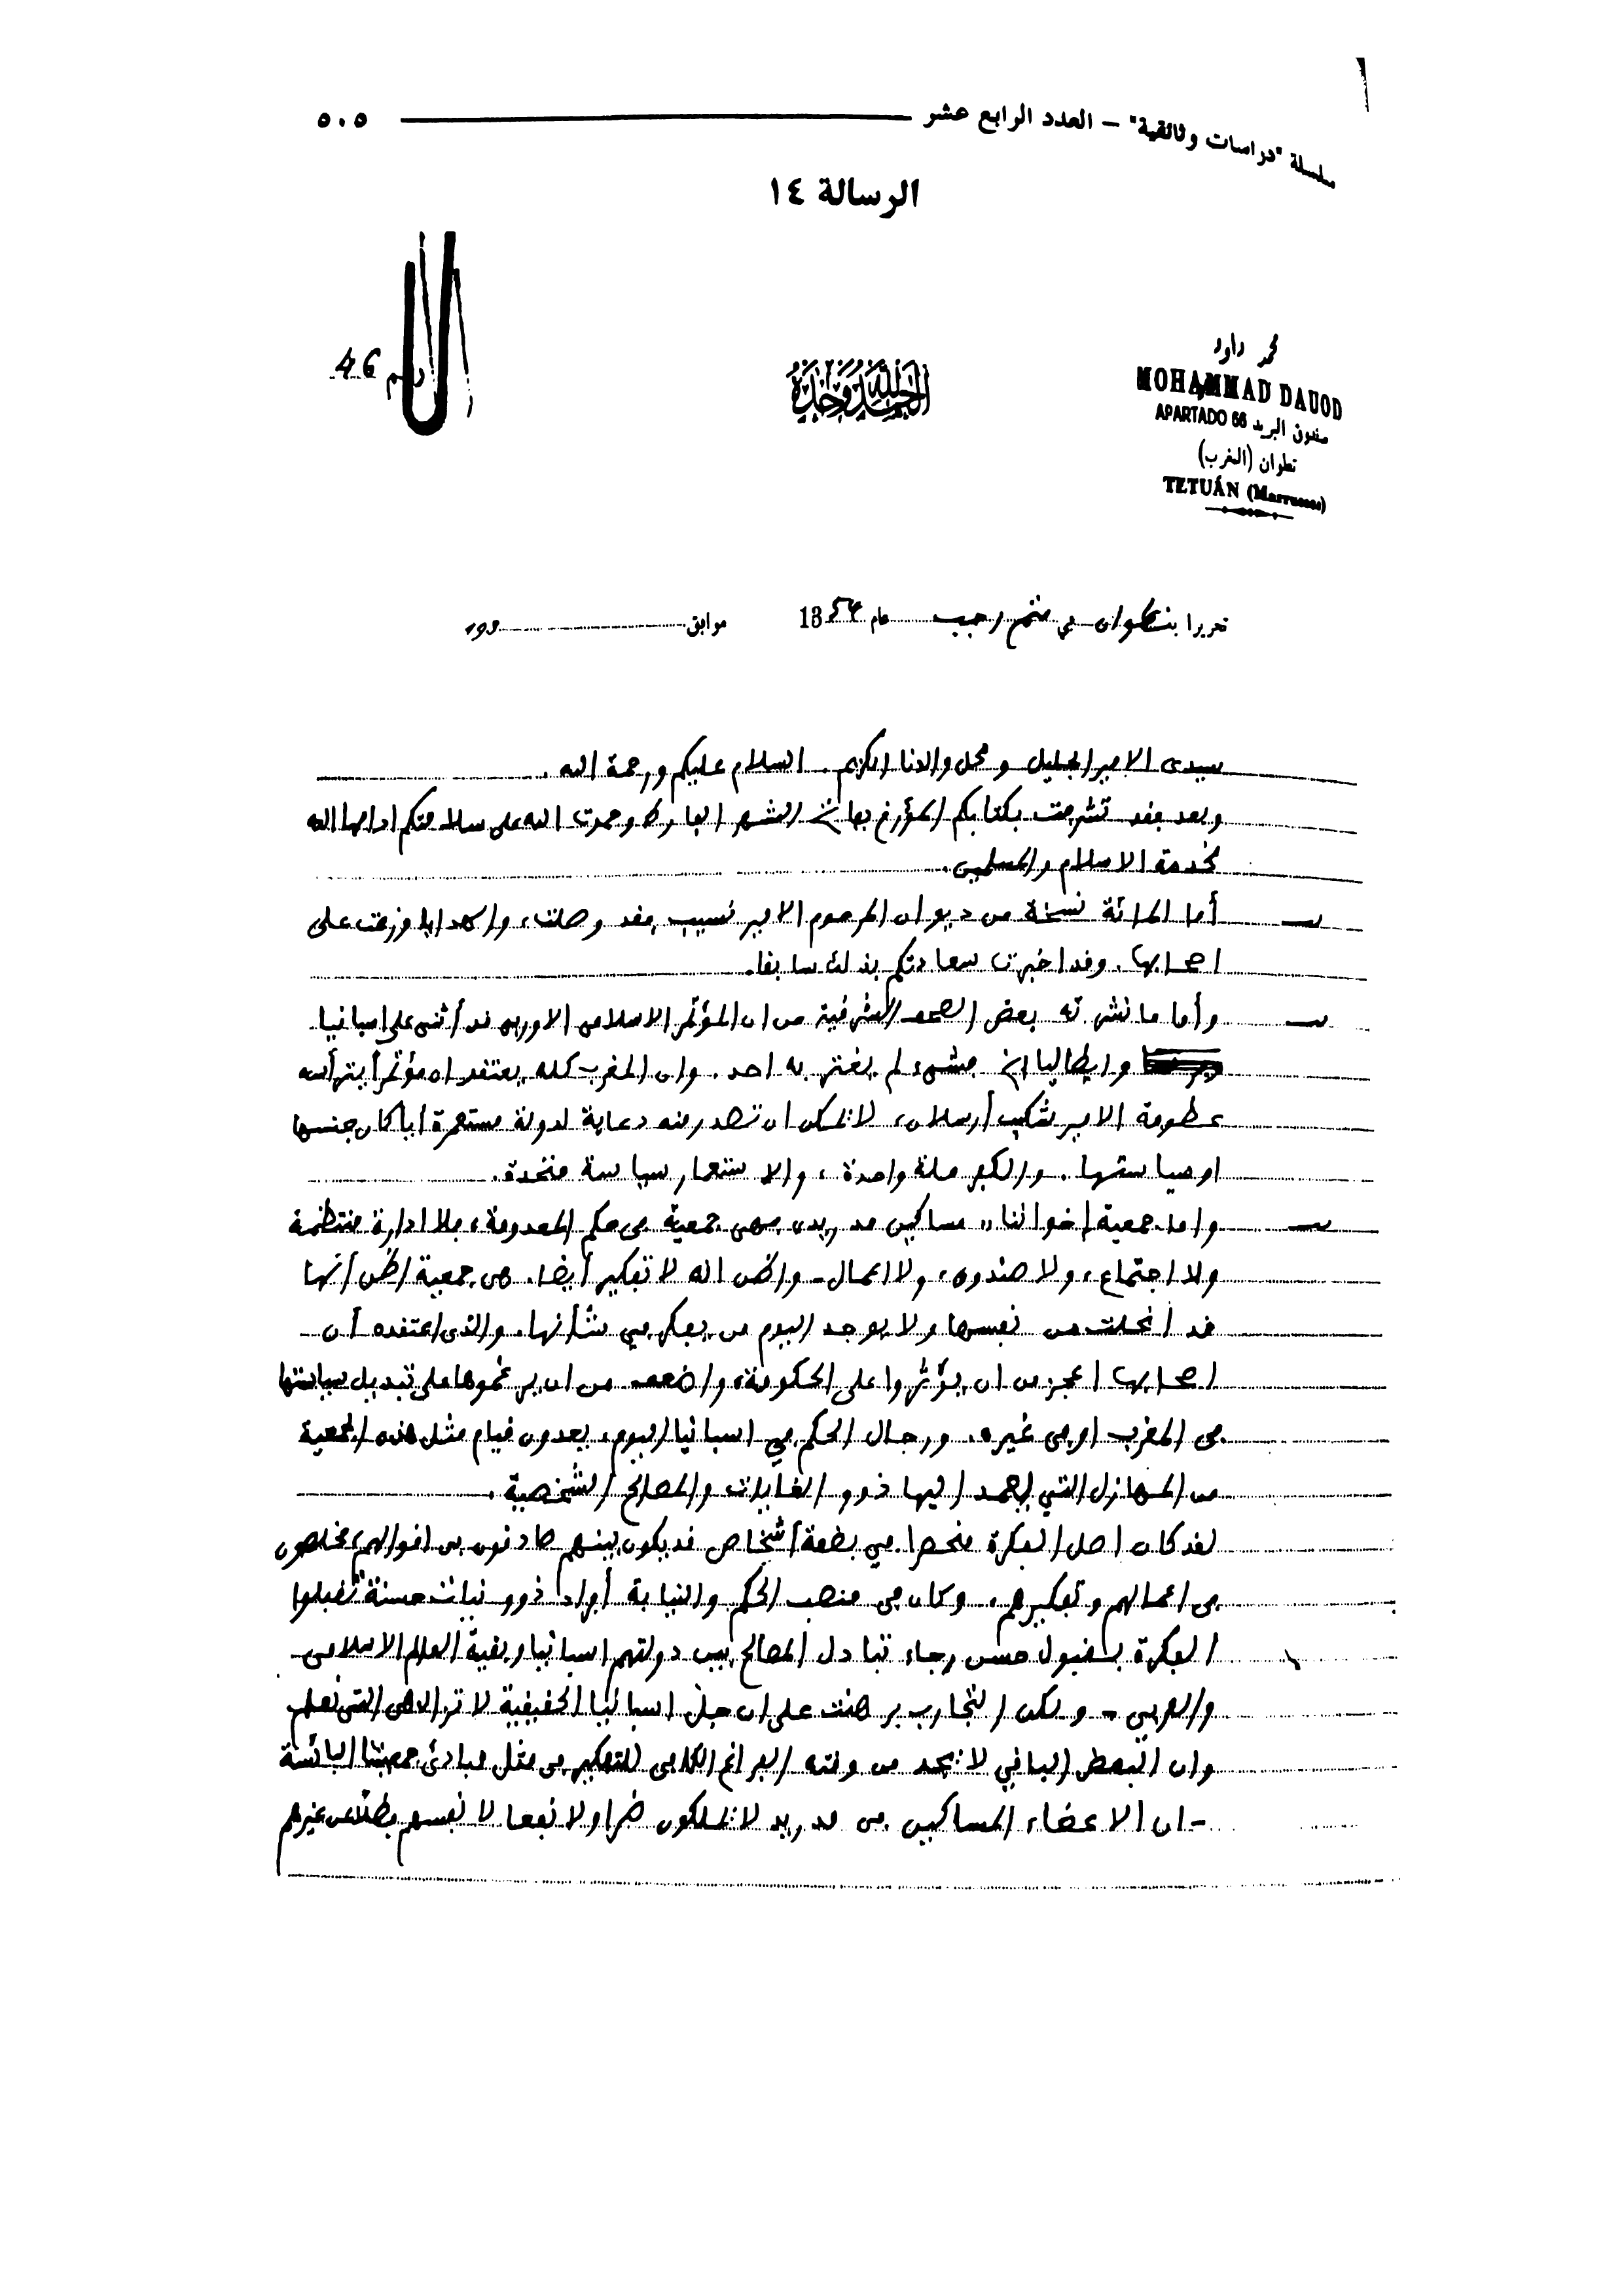 سلسلة "دراسات وثائقية" – العدد الرابع عشر ٥٠٥
الرسالة ١٤
رقم 46
الحمد لله وحده
محمد داود
MOHAMMAD DAUOD
APARTADO 66 صندوق البريد
تطوان (المغرب)
TETUÁN (Marruecos)
تحريرا بتطوان في متم رجب عام 1354 موافق 193
سيدي الامير الجليل ومحل والدنا الكريم. السلام عليكم ورحمة الله.
وبعد فقد تشرفت بكتابكم المؤرخ بفاتح الشهر الفارط وحمدت الله على سلامتكم ادامها الله
لخدمة الاسلام والمسلمين.
أما المائة نسخة من ديوان المرحوم الامير نسيب فقد وصلت، والهدايا وزعت على
اصحابها. وقد اخبرت سعادتكم بذلك سابقا.
وأما ما نشرته بعض الصحف الشرقية من ان المؤتمر الاسلامي الاوربي قد أثنى على اسبانيا
وايطاليا الخ فشيء لم يغتر به احد. وان المغرب كله يعتقد ان مؤتمرا يترأسه
عطوفة الامير شكيب أرسلان، لا يمكن ان تصدر منه دعاية لدولة مستعمرة أيا كان جنسها
او سياستها. والكفر ملة واحدة، والاستعمار سياسة متحدة.
واما جمعية اخواننا مساكين مدريد فهي جمعية في حكم المعدومة، بلا ادارة منتظمة
ولا اجتماع، ولا صندوق، ولا اعمال - واظن انه لا تفكير أيضا. هي جمعية اظن أنها
قد انحلت من نفسها ولا يوجد اليوم من يفكر في شأنها. والذي اعتقده أن
اصحابها اعجز من ان يؤثروا على الحكومة، واضعف من ان يرغموها على تبديل سياستها
في المغرب او في غيره. ورجال الحكم في اسبانيا اليوم، يعدون قيام مثل هذه الجمعية
من المهازل التي يعمد اليها ذوو الغايات والمصالح الشخصية.
لقد كان اصل الفكرة منحصرا في بضعة أشخاص قد يكون بينهم صادقون في اقوالهم، مخلصون
في اعمالهم وتفكيرهم. وكان في منصب الحكم والنيابة أفراد ذوو نيات حسنة تقبلوا
الفكرة بقبول حسن رجاء تبادل المصالح بين دولتهم اسبانيا وبقية العالم الاسلامي
والعربي - ولكن التجارب برهنت على ان جل اسبانيا الحقيقية لا تزال هي التي نعلم
وان البعض الباقي لا يجد من وقته الفراغ الكافي للتفكير في مثل مبادئ جمعيتنا البائسة
- ان الاعضاء المساكين في مدريد لا يملكون ضرا ولا نفعا لا نفسهم فضلا عن غيرهم